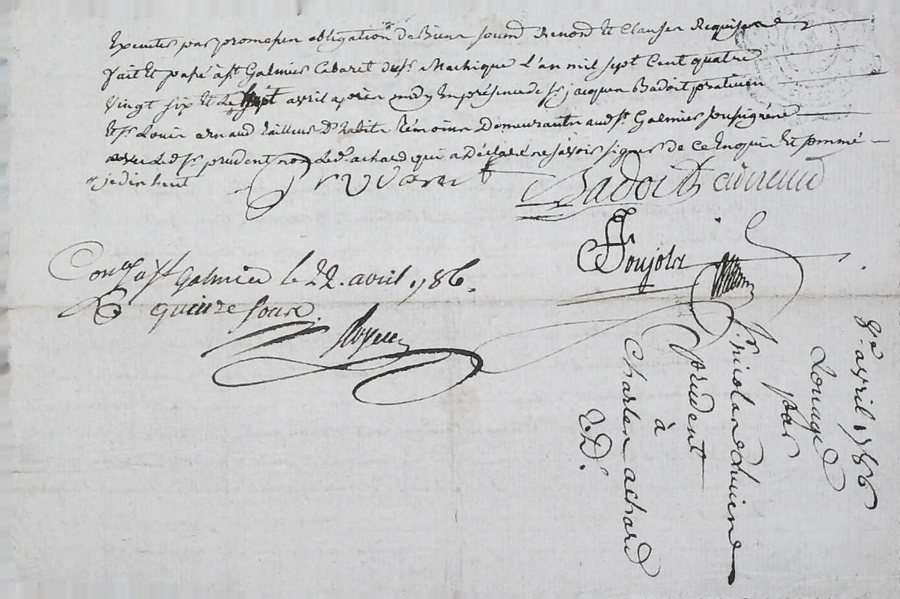 Executer par promesse obligation de Biens soumi Renond et Clauses Requises
fait et passé a st Galmier Cabaret du sr Machique L'an mil sept Cent quatre
vingt six et Le huit avril après midy En présence de sr jacques Badoit praticien
Et sr Louis arnaud tailleur d'habits témoins Demeurants aud st Galmier soussignés
avec Led sr prudent non Led achard qui a Déclaré ne savoir signer de ce Enquis Et sommé
je dis huit
Prudent
Badoit arnaud
Soujola
Con.lé a st Galmier le 22. avril 1786.
R. quinze sous.
8.e avril 1786
Louage
par
Sr nicolas
prudent
à
Charles achard